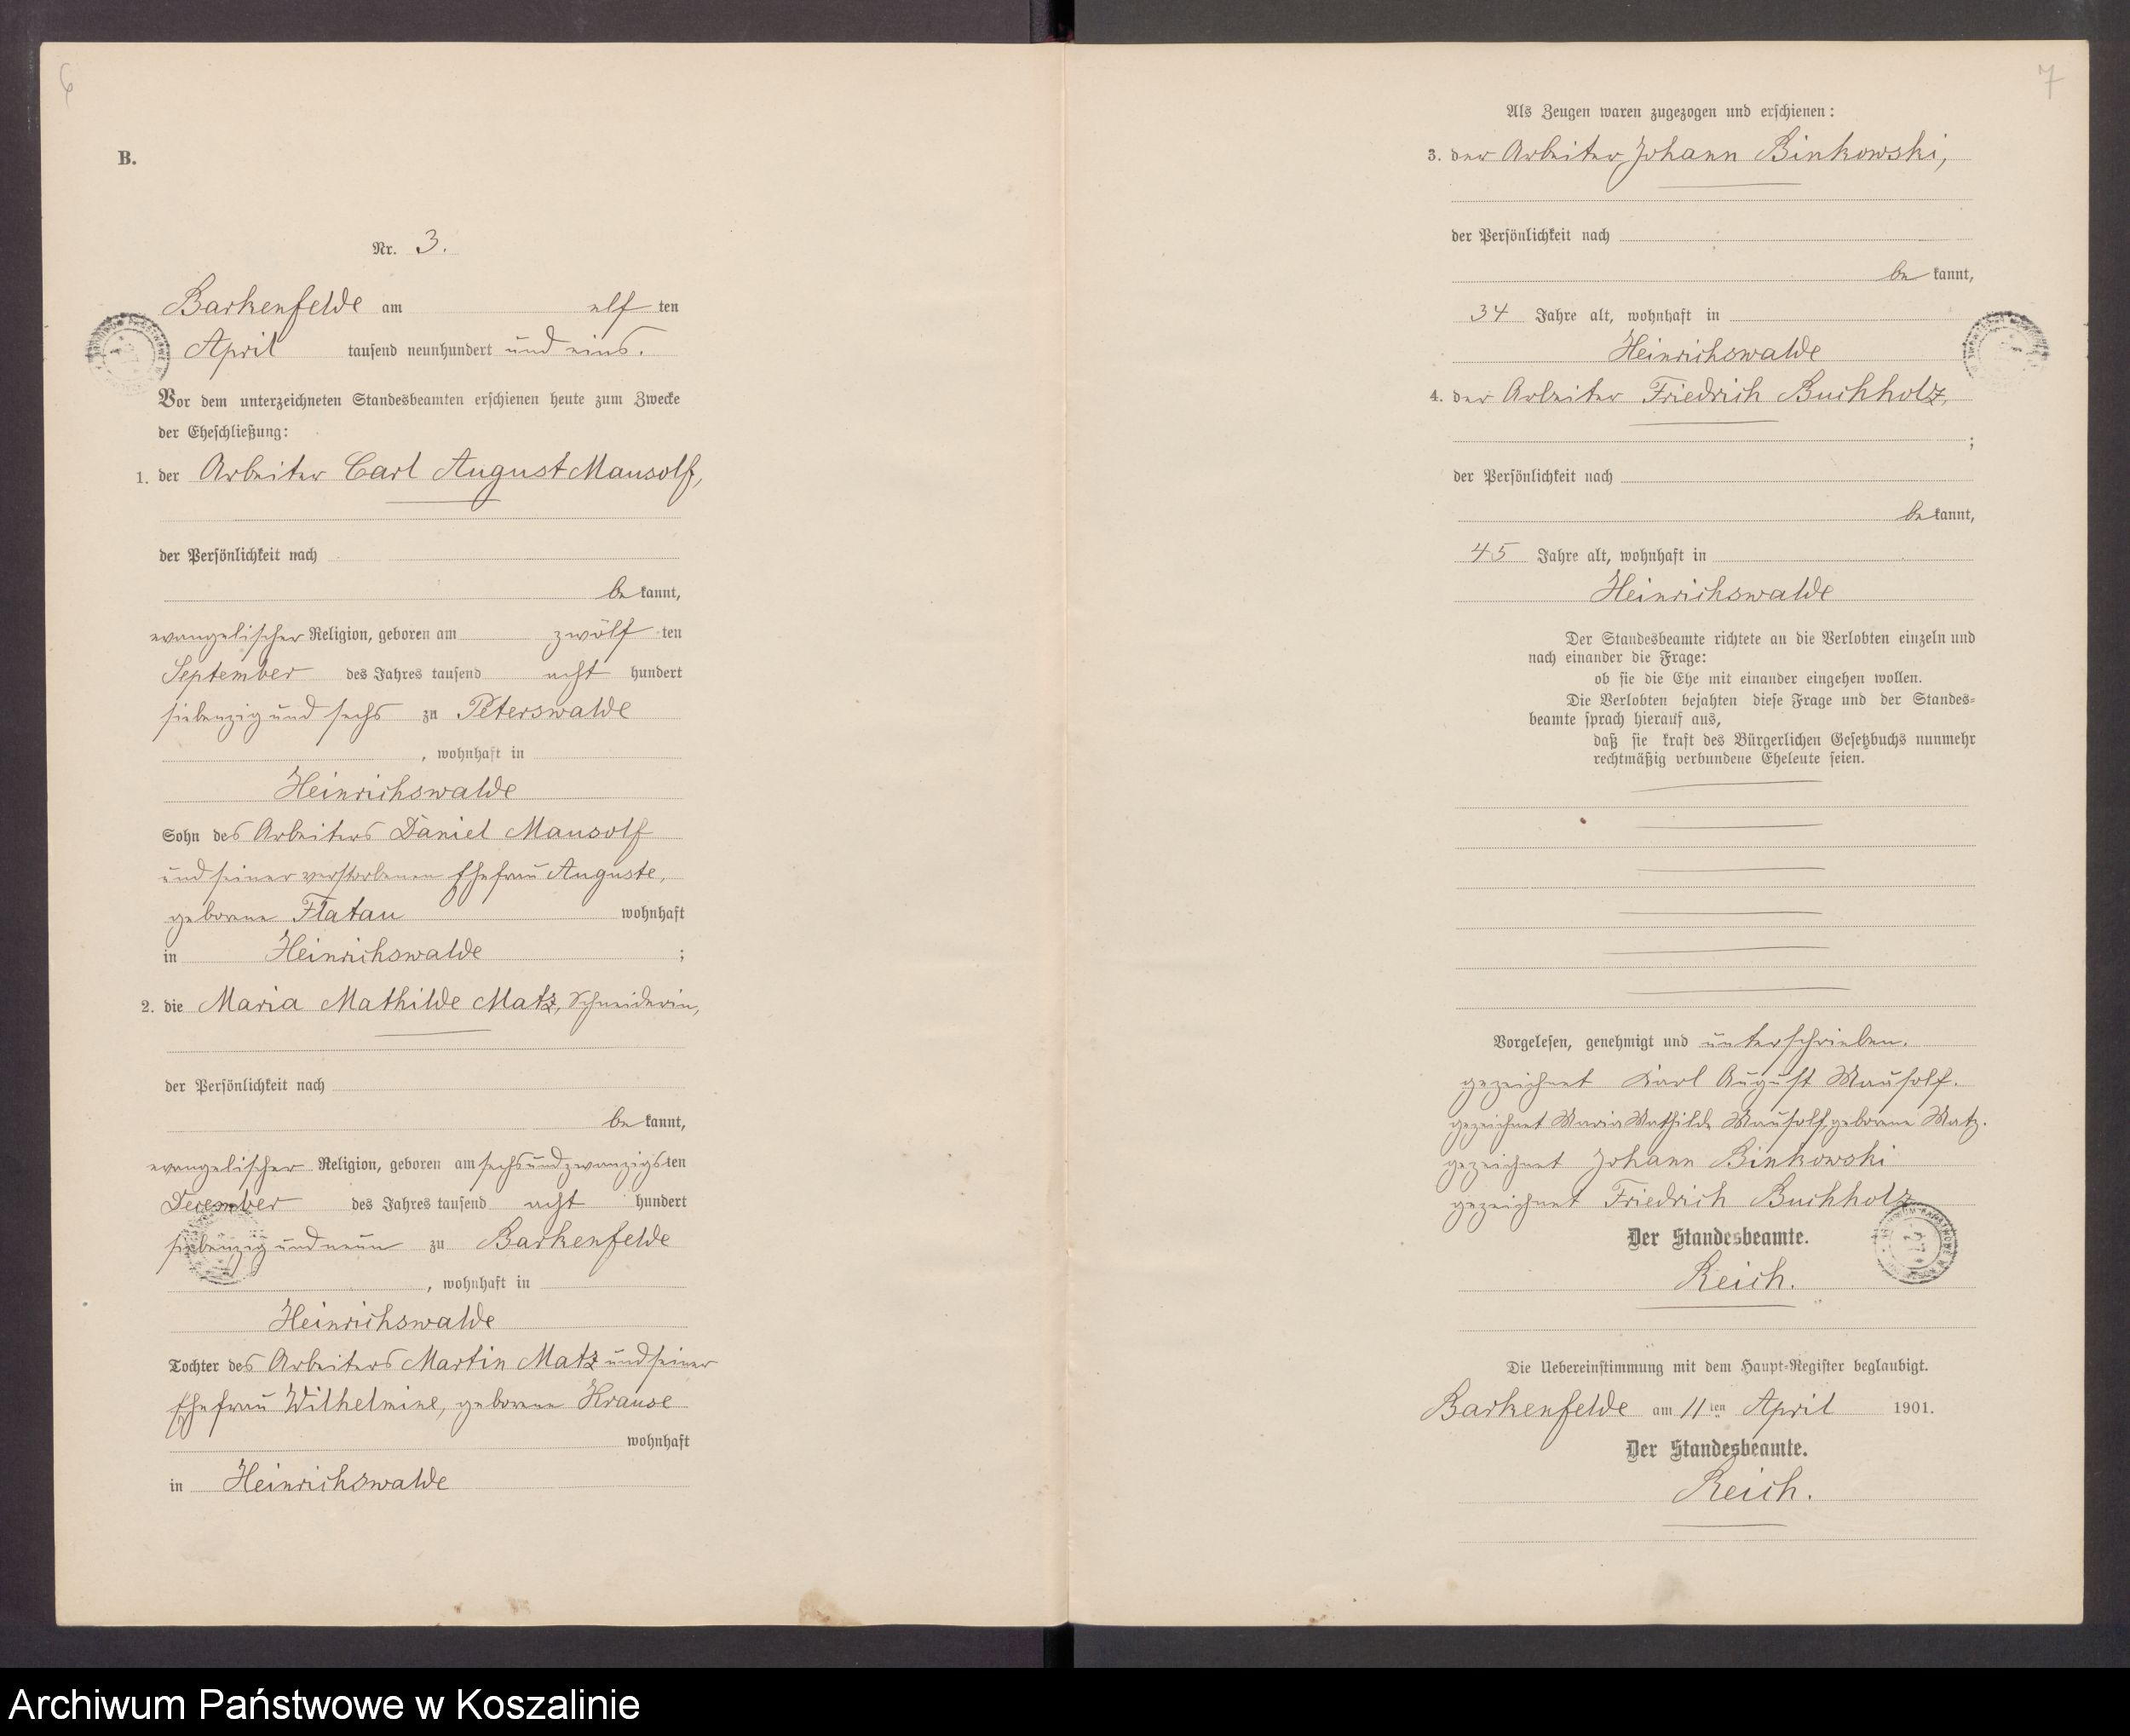 6
B.
Nr. 3.
Barkenfelde am elf ten
April tausend neunhundert und eins.
Vor dem unterzeichneten Standesbeamten erschienen heute zum Zwecke
der Eheschließung:
1. der Arbeiter Carl August Mausolf,
der Persönlichkeit nach
be kannt,
evangelischer Religion, geboren am zwölf ten
September des Jahres tausend acht hundert
siebenzig und sechs zu Peterswalde
, wohnhaft in
Heinrichswalde
Sohn des Arbeiters Daniel Mausolf
und seiner verstorbenen Ehefrau Auguste,
geborene Flatau wohnhaft
in Heinrichswalde ;
2. die Maria Mathilde Matz, Schneiderin,
der Persönlichkeit nach
be kannt,
evangelischer Religion, geboren am sechsundzwanzigsten
December des Jahres tausend acht hundert
siebenzig und neun zu Barkenfelde
, wohnhaft in
Heinrichswalde
Tochter des Arbeiters Martin Matz und seiner
Ehefrau Wilhelmine, geborene Krause
wohnhaft
in Heinrichswalde
7
Als Zeugen waren zugezogen und erschienen:
3. der Arbeiter Johann Binkowski,
der Persönlichkeit nach
be kannt,
34 Jahre alt, wohnhaft in
Heinrichswalde
4. der Arbeiter Friedrich Buchholz,
;
der Persönlichkeit nach
be kannt,
45 Jahre alt, wohnhaft in
Heinrichswalde
Der Standesbeamte richtete an die Verlobten einzeln und
nach einander die Frage:
ob sie die Ehe mit einander eingehen wollen.
Die Verlobten bejahten diese Frage und der Standes-
beamte sprach hierauf aus,
daß sie kraft des Bürgerlichen Gesetzbuchs nunmehr
rechtmäßig verbundene Eheleute seien.
Vorgelesen, genehmigt und unterschrieben.
gezeichnet Karl August Mausolf.
gezeichnet Maria Mathilde Mausolf, geborene Matz.
gezeichnet Johann Binkowski
gezeichnet Friedrich Buchholz
Der Standesbeamte.
Reich.
Die Uebereinstimmung mit dem Haupt-Register beglaubigt.
Barkenfelde am 11ten April 1901.
Der Standesbeamte.
Reich.
Archiwum Państwowe w Koszalinie